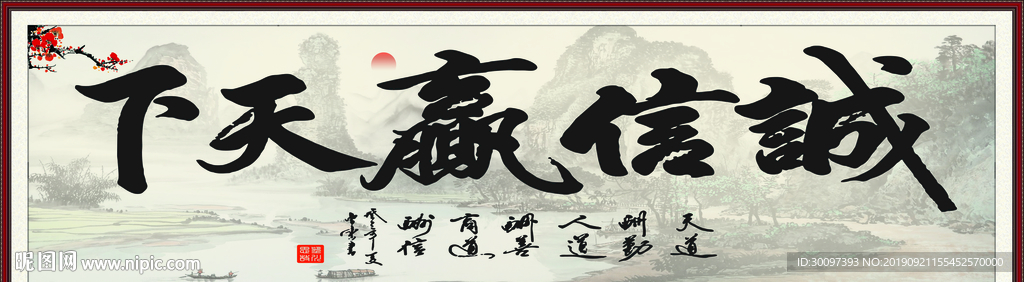 誠信贏天下
天道
酬勤
人道
酬善
商道
酬信
昵图网 www.nipic.com
ID:30097393 NO:20190921155452570000